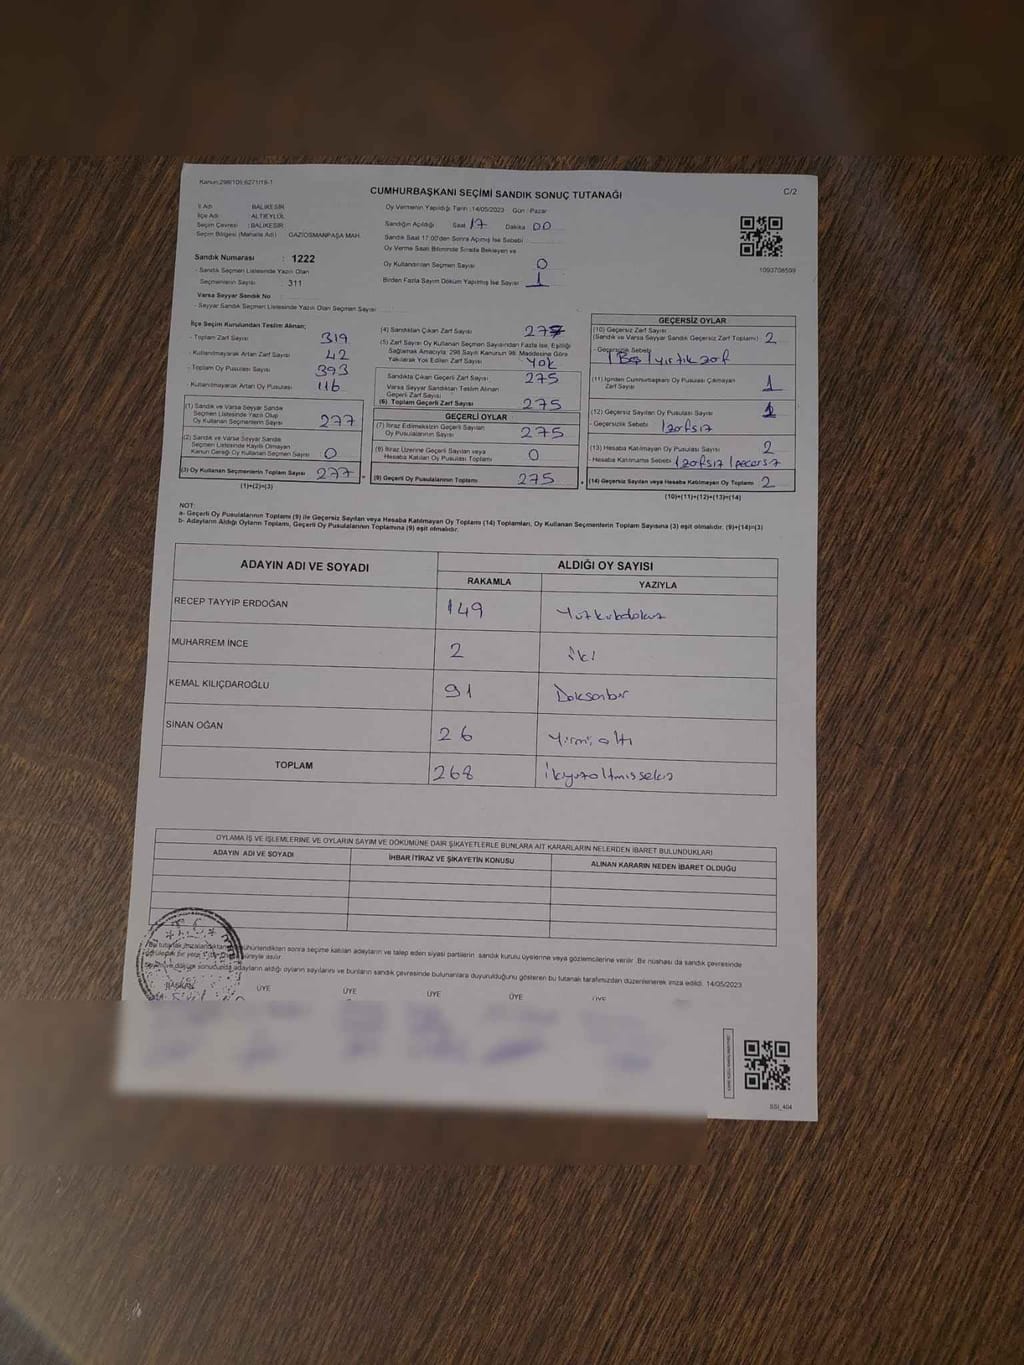 Kanun:298/105;6271/19-1
C/2
CUMHURBAŞKANI SEÇİMİ SANDIK SONUÇ TUTANAĞI
İl Adı : BALIKESİR
İlçe Adı : ALTIEYLÜL
Seçim Çevresi : BALIKESİR
Seçim Bölgesi (Mahalle Adı) : GAZİOSMANPAŞA MAH.
Sandık Numarası : 1222
- Sandık Seçmen Listesinde Yazılı Olan
Seçmenlerin Sayısı : 311
Varsa Seyyar Sandık No
- Seyyar Sandık Seçmen Listesinde Yazılı Olan Seçmen Sayısı
Oy Vermenin Yapıldığı Tarih :14/05/2023 Gün : Pazar
Sandığın Açıldığı Saat 17 Dakika 00
Sandık Saat 17:00'den Sonra Açılmış İse Sebebi
Oy Verme Saati Bitiminde Sırada Bekleyen ve
Oy Kullandırılan Seçmen Sayısı 0
Birden Fazla Sayım Döküm Yapılmış İse Sayısı 1
1093708599
İlçe Seçim Kurulundan Teslim Alınan;
- Toplam Zarf Sayısı 319
- Kullanılmayarak Artan Zarf Sayısı 42
- Toplam Oy Pusulası Sayısı 393
- Kullanılmayarak Artan Oy Pusulası 116
(1) Sandık ve Varsa Seyyar Sandık
Seçmen Listesinde Yazılı Olup
Oy Kullanan Seçmenlerin Sayısı 277
(2) Sandık ve Varsa Seyyar Sandık
Seçmen Listesinde Kayıtlı Olmayan
Kanun Gereği Oy Kullanan Seçmen Sayısı 0
(3) Oy Kullanan Seçmenlerin Toplam Sayısı 277
(1)+(2)=(3)
(4) Sandıktan Çıkan Zarf Sayısı 277
(5) Zarf Sayısı Oy Kullanan Seçmen Sayısından Fazla İse, Eşitliği
Sağlamak Amacıyla; 298 Sayılı Kanunun 98. Maddesine Göre
Yakılarak Yok Edilen Zarf Sayısı Yok
Sandıkta Çıkan Geçerli Zarf Sayısı 275
Varsa Seyyar Sandıktan Teslim Alınan
Geçerli Zarf Sayısı
(6) Toplam Geçerli Zarf Sayısı 275
GEÇERLİ OYLAR
(7) İtiraz Edilmeksizin Geçerli Sayılan
Oy Pusulalarının Sayısı 275
(8) İtiraz Üzerine Geçerli Sayılan veya
Hesaba Katılan Oy Pusulası Toplamı 0
(9) Geçerli Oy Pusulalarının Toplamı 275
GEÇERSİZ OYLAR
(10) Geçersiz Zarf Sayısı
(Sandık ve Varsa Seyyar Sandık Geçersiz Zarf Toplamı) 2
- Geçersizlik Sebebi 1 Boş 1 yırtık zarf
(11) İçinden Cumhurbaşkanı Oy Pusulası Çıkmayan
Zarf Sayısı 1
(12) Geçersiz Sayılan Oy Pusulası Sayısı
- Geçersizlik Sebebi 1 zarfsız
(13) Hesaba Katılmayan Oy Pusulası Sayısı 2
- Hesaba Katılmama Sebebi 1 zarfsız 1
(14) Geçersiz Sayılan veya Hesaba Katılmayan Oy Toplamı 2
(10)+(11)+(12)+(13)=(14)
NOT:
a- Geçerli Oy Pusulalarının Toplamı (9) ile Geçersiz Sayılan veya Hesaba Katılmayan Oy Toplamı (14) Toplamları, Oy Kullanan Seçmenlerin Toplam Sayısına (3) eşit olmalıdır. (9)+(14)=(3)
b- Adayların Aldığı Oyların Toplamı, Geçerli Oy Pusulalarının Toplamına (9) eşit olmalıdır.
ADAYIN ADI VE SOYADI
ALDIĞI OY SAYISI
RAKAMLA YAZIYLA
RECEP TAYYİP ERDOĞAN 149 Yüzkırkdokuz
MUHARREM İNCE 2 İki
KEMAL KILIÇDAROĞLU 91 Doksanbir
SİNAN OĞAN 26 Yirmialtı
TOPLAM 268 İkiyüzaltmışsekiz
OYLAMA İŞ VE İŞLEMLERİNE VE OYLARIN SAYIM VE DÖKÜMÜNE DAİR ŞİKAYETLERLE BUNLARA AİT KARARLARIN NELERDEN İBARET BULUNDUKLARI
ADAYIN ADI VE SOYADI
İHBAR İTİRAZ VE ŞİKAYETİN KONUSU
ALINAN KARARIN NEDEN İBARET OLDUĞU
Bu tutanak imzalandıktan mühürlendikten sonra seçime katılan adayların ve talep eden siyasi partilerin sandık kurulu üyelerine veya gözlemcilerine verilir. Bir nüshası da sandık çevresinde
süreyle asılır.
döküm sonucunda adayların aldığı oyların sayılarını ve bunların sandık çevresinde bulunanlara duyurulduğunu gösteren bu tutanak tarafımızdan düzenlenerek imza edildi. 14/05/2023
T.C.
BAŞKAN ÜYE ÜYE ÜYE ÜYE ÜYE
SSI_404